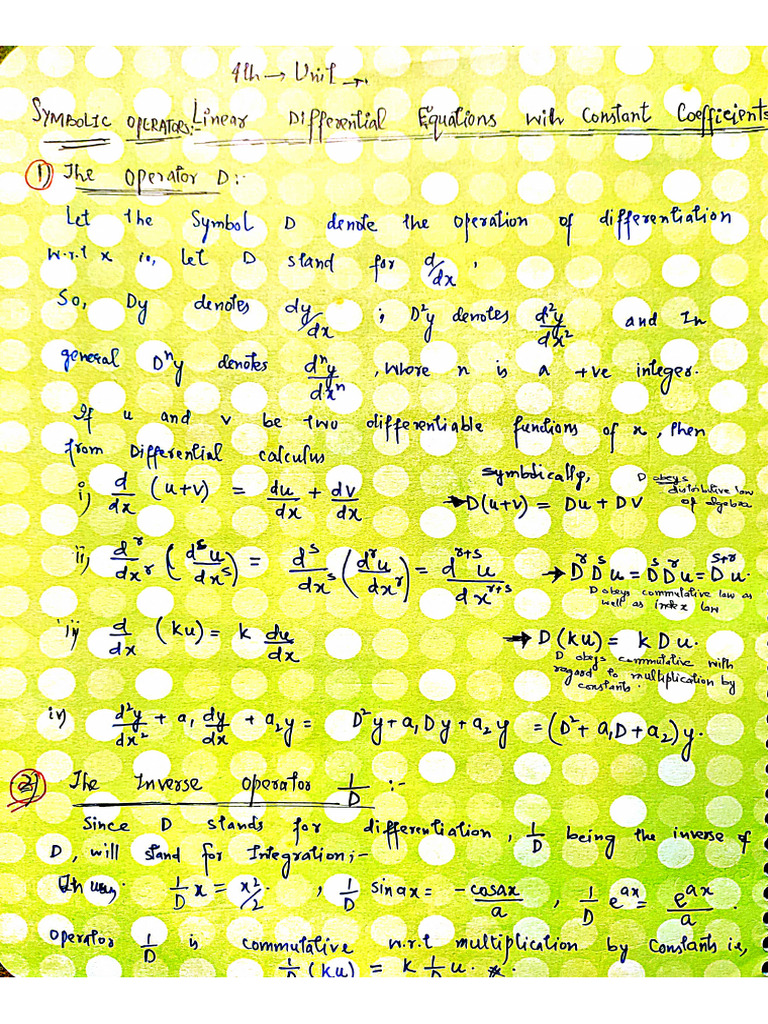 4th → Unit →.
SYMBOLIC OPERATORS:- Linear Differential Equations with Constant Coefficients
1) The Operator D:-
Let the Symbol D denote the operation of differentiation
w.r.t x ie, let D stand for d/dx,
So, Dy denotes dy/dx ; D²y denotes d²y/dx² and In
general Dⁿy denotes dⁿy/dxⁿ, where n is a +ve integer.
If u and v be two differentiable functions of x, then
from Differential calculus
i) d/dx (u+v) = du/dx + dv/dx
symbolically,
→ D(u+v) = Du + DV
D obeys
distributive law
of algebra
ii) d^r/dx^r (d^s u/dx^s) = d^s/dx^s (d^r u/dx^r) = d^{r+s} u/dx^{r+s} → D^r D^s u = D^s D^r u = D^{s+r} u.
D obeys commutative law as
well as index law
iii) d/dx (ku) = k du/dx → D(ku) = k Du.
D obeys commutative with
regard to multiplication by
constants.
iv) d²y/dx² + a₁ dy/dx + a₂y = D²y + a₁Dy + a₂y = (D² + a₁D + a₂)y.
2) The Inverse Operator 1/D :-
Since D stands for differentiation, 1/D being the inverse of
D, will stand for Integration;-
1/D x = x²/2. , 1/D sinax = -cosax/a , 1/D e^{ax} = e^{ax}/a .
Operator 1/D is commutative w.r.t multiplication by constants ie,
1/D (ku) = k 1/D u.